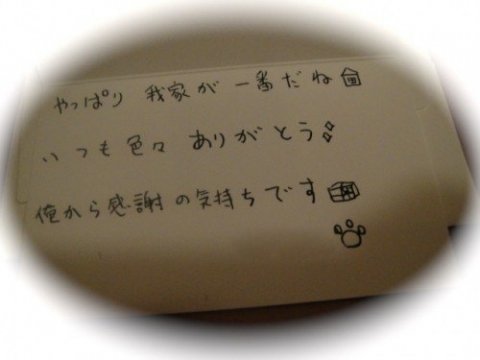 やっぱり 我家が 一番だね
いつも色々 ありがとう
俺から感謝の気持ちです